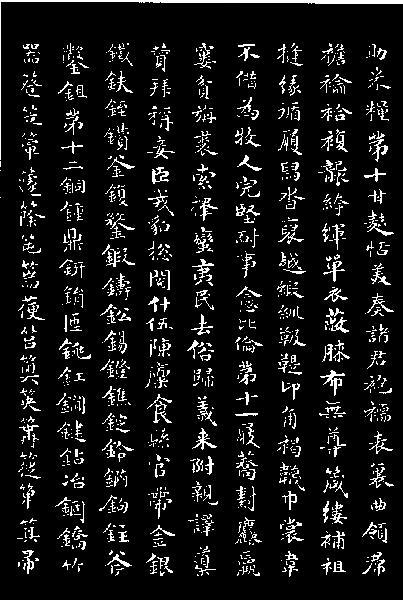 助米糧第十甘麩恬美奏諸君袍襦表裏曲領帬
襜褕袷複單衣蔽膝布無尊箴縷補袒
緣循履舄沓裒越緞紃靸鞮卬角褐韤巾裳韋
不借為牧人完堅耐事愈比倫第十一屐蕎對麤羸
窶貧旃裘索擇蠻夷民去俗歸義來附親譯導
贊拜稱妾臣戎貊總閱什伍陳廩食縣官帶金銀
鐵鈇錐鑽釜鍑鍪鍛鑄鈆錫鐙鐎錠鈴斧
鑿鉏第十二銅鍾鼎鈃鋗匜銚釭鐗鍵鉆冶錮鐈竹
器簦笠簟籧篨篅筥箕帚